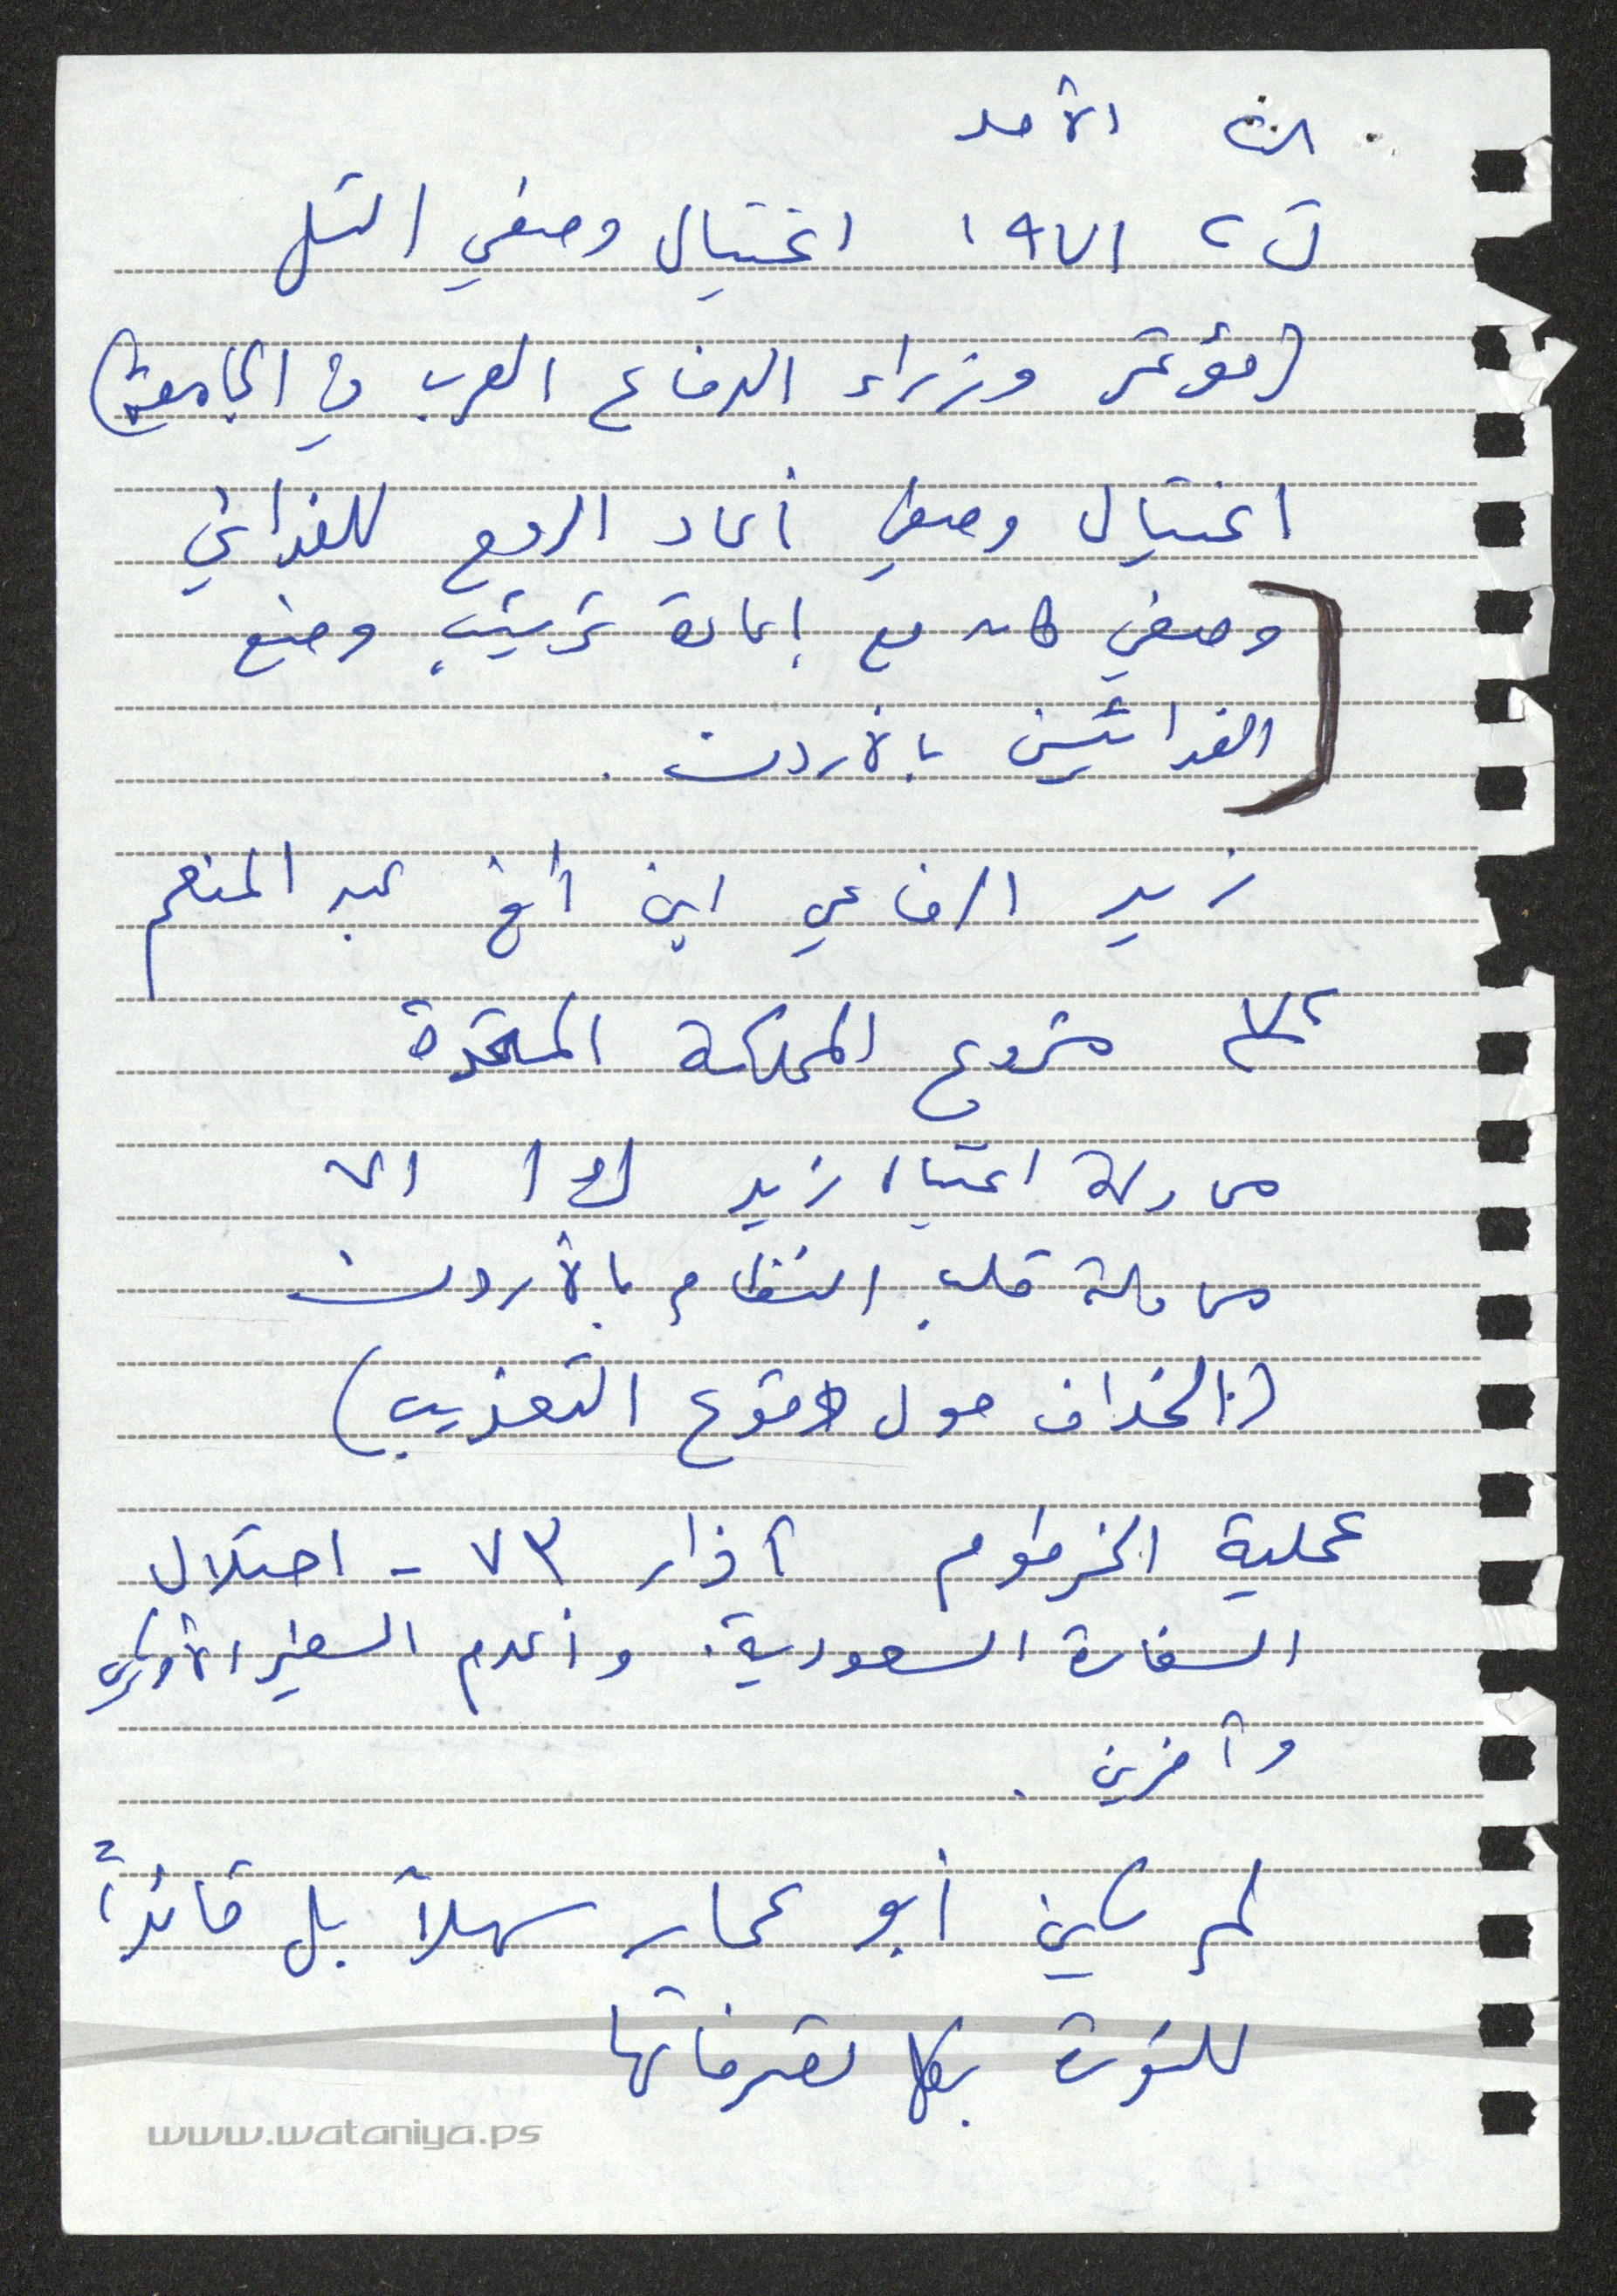 الأحد
ت٢ ١٩٧١ اغتيال وصفي التل
(مؤتمر وزراء الدفاع العرب في الجامعة)
اغتيال وصفي أعاد الروح للفدائي
وصفي كان مع إعادة ترتيب وضع
الفدائيين بالأردن.
زيد الرفاعي ابن أخ عبد المنعم
٧٢ مشروع المملكة المتحدة
محاولة اغتيال زيد ك١ ٧١
محاولة قلب النظام بالأردن
(الخلاف حول وقوع التعذيب)
عملية الخرطوم آذار ٧٣ - احتلال
السفارة السعودية. وأعدم السفير الأمريكي
وآخرين.
لم يكن أبو عمار سهلاً بل قائداً
للثورة بكل تصرفاتها
www.wataniya.ps